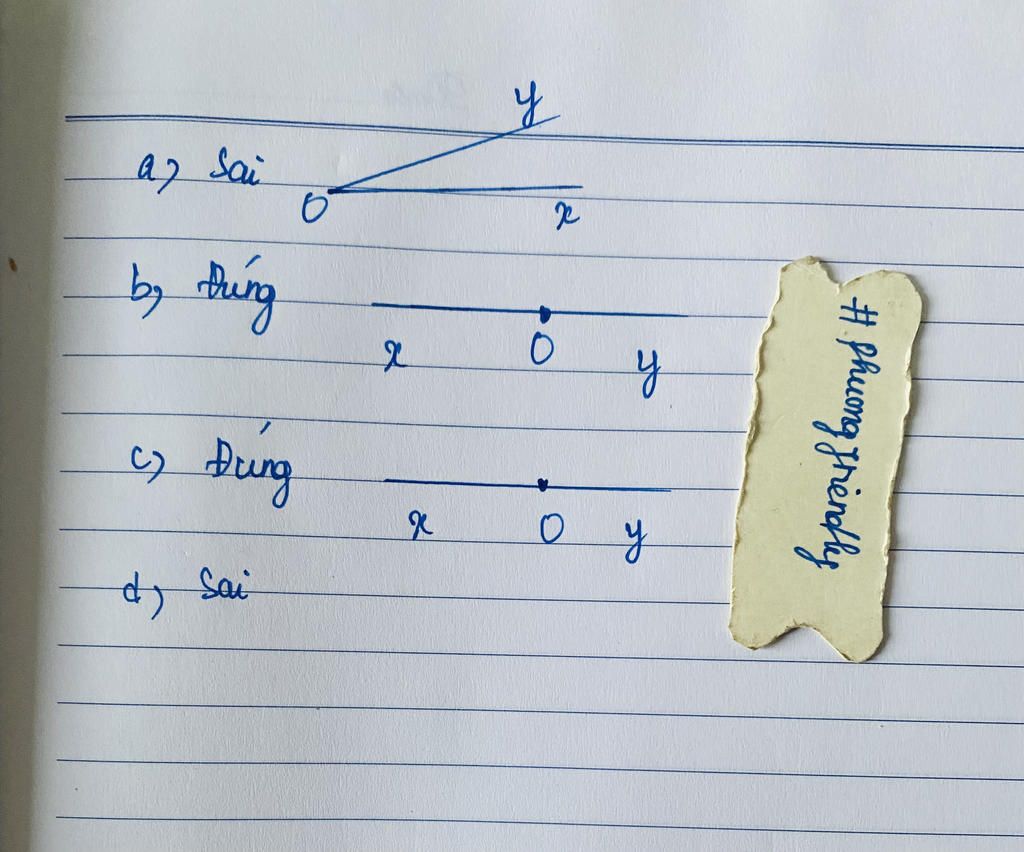 y
a) Sai
O
x
b) Đúng
x O y
c) Đúng
x O y
d) Sai
#phuongfriendly